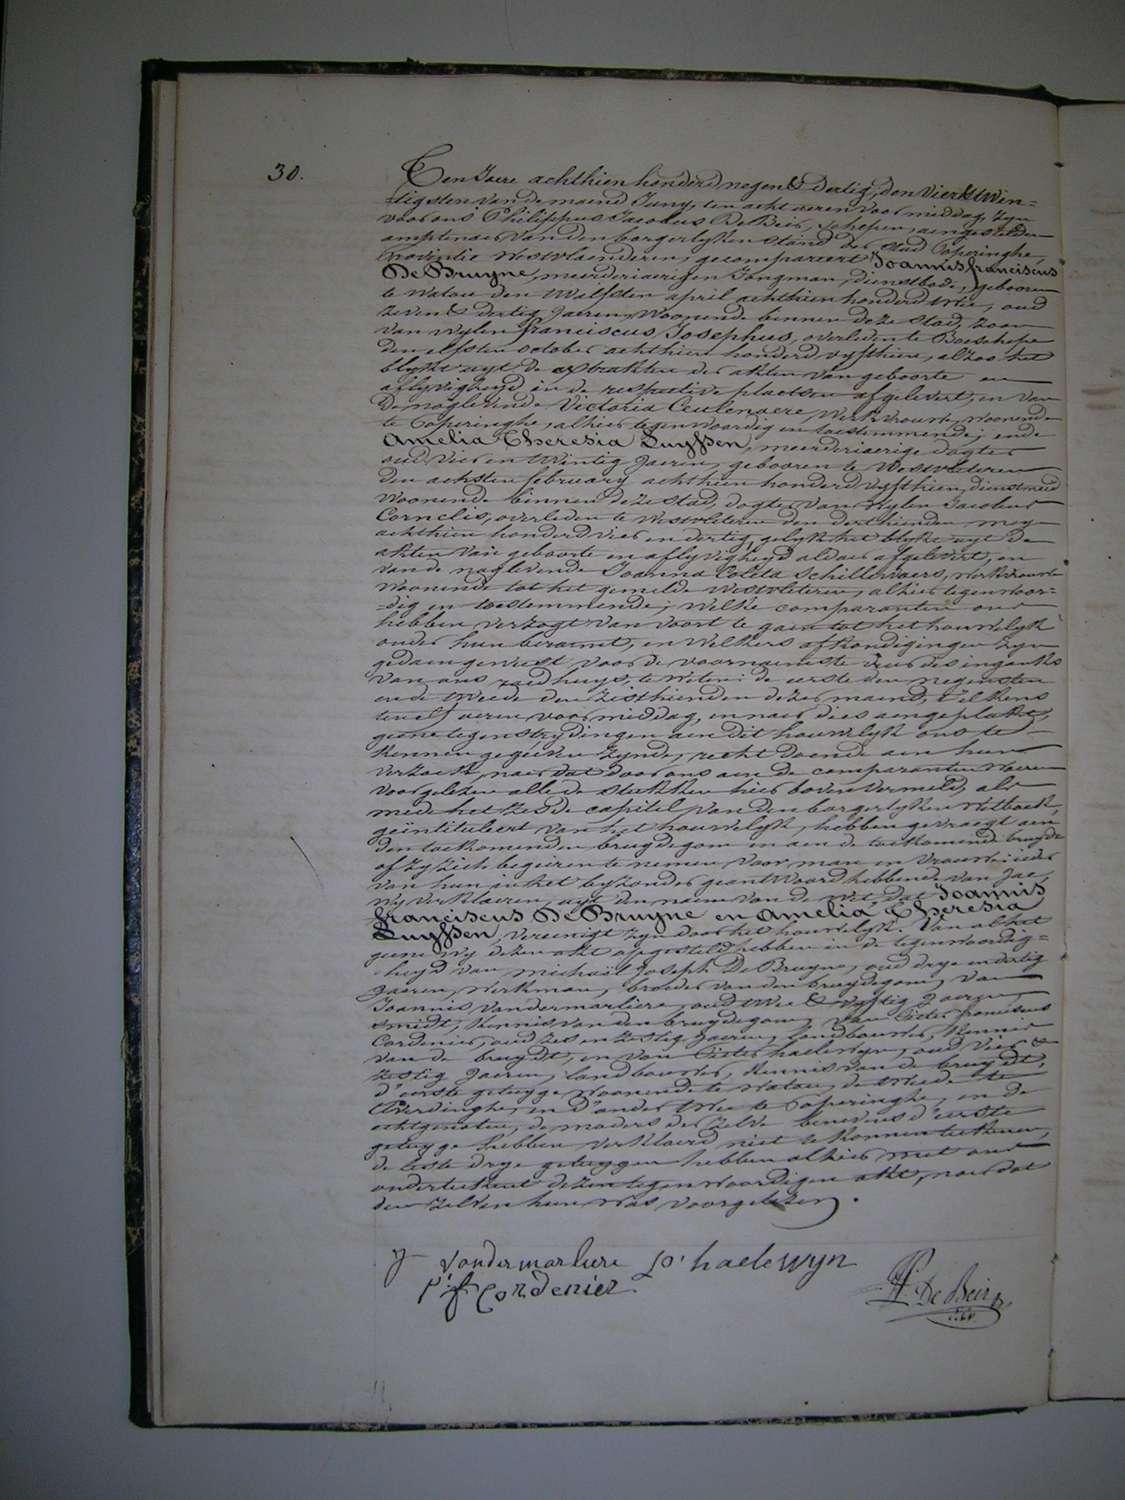 30.
Ten Jaere achthien honderd negen & dertig, den Vier & twin=
=tigsten van de maend Juny, ten acht ueren voormiddag, zyn
voor ons Philippus Jacobus De Beir, schepen, aengestelden
amptenaer van den borgerlyken stand der stad Poperinghe,
provintie Westvlaenderen, gecompareert Joannis franciscus
De Bruyne, meerderjaerigen Jongman, dienstbode, gebooren
te Watou den twelfsten april achthien honderd twee, oud
zeven & dertig Jaeren, Woonende binnen deze stad, zoon
van wylen franciscus Josephus, overleden te Boeschepe
den elfsten october achthien honderd vyfthiene, alzoo het
blykt uyt de extrakten der akten van geboorte en
aflyvigheyd in de respective plaetsen afgelevert, en van
de naglevende Victoria Ceulenaere, Werkvrouw, woonende
te Poperinghe, alhier tegenwoordig en toestemmende; ende
Amelia Theresia Luyssen, meerderjaerige dogter
oud vier en twintig Jaeren, gebooren te Westvleteren
den achsten february achthien honderd vyfthien, dienstmeid
woonende binnen deze stad, dogter van wylen Jacobus
Cornelis, overleden te Westvleteren den derthienden mey
achthien honderd vier en dertig, gelyk het blykt uyt de
akten van geboorte en aflyvigheyd aldaer afgelevert, en
van de naglevende Joanna Coleta Schillewaers, werkvrouw
woonende tot het gemelde Westvleteren, alhier tegenwoor=
=dig en toestemmende; Welke comparanten ons
hebben verzogt van voort te gaen tot het houwelyk
onder hun beraemt, en Welkers afkondigingen zyn
gedaen geweest voor de voornaemste deur des ingangs
van ons raedhuys, te weten: de eerste den negensten
ende tweede den zesthienden dezer maend, telkens
ten elf ueren voormiddag, en naer dies aengeplakt,
geene tegenstrydingen aen dit houwelyk ons te
kennen gegeeven zynde, recht doende aen hun
verzoek, naer dat door ons aen de comparanten waeren
voorgelezen alle de stukken hier boven vermeld, als
mede het zesde capitel van den borgerlyken wetboek,
geintituleert van het houwelyk, hebben gevraegt aen
den toekomenden bruydegom en aen de toekomende bruydt
of zy zich begeiren te nemen voor man en vrouw: ieder
van hun in het byzonder geantwoord hebbende van Jae,
wy verklaeren, uyt den naem van de wet, dat Joannis
franciscus De Bruyne en Amelia Theresia
Luyssen, vereenigt zyn door het houwelyk. Van al het
geene wy dezen akt opgesteld hebben in de tegenwoordig=
=heyd van michaël Joseph De Bruyne, oud drye en dertig
Jaeren, Werkman, broeder van den bruydegom, van
Joannis Vandermarliere, oud twee & vyftig Jaeren,
smidt, kennis van den bruydegom, van Pieter franciscus
Cordenier, oud zes en zestig Jaeren, landbouwer, kennis
van de bruydt, en van Pieter haelewyn, oud Vier &
zestig Jaeren, landbouwer, kennis van de bruydt,
d'eerste getuyge woonende te Watou, de tweede te
Elverdinghe, en d'ander twee te Poperinghe, en de
echtgenoten, de moeders der zelve benevens d'eerste
getuyge hebben verklaerd niet te konnen teekenen,
de leste drye getuygen hebben alhier met ons
onderteekent dezen tegenwoordigen akt, naer dat
den zelven hun was voorgelezen.
J Vandermarliere P: haelewyn
P: f Cordenier
P. J. De Beir